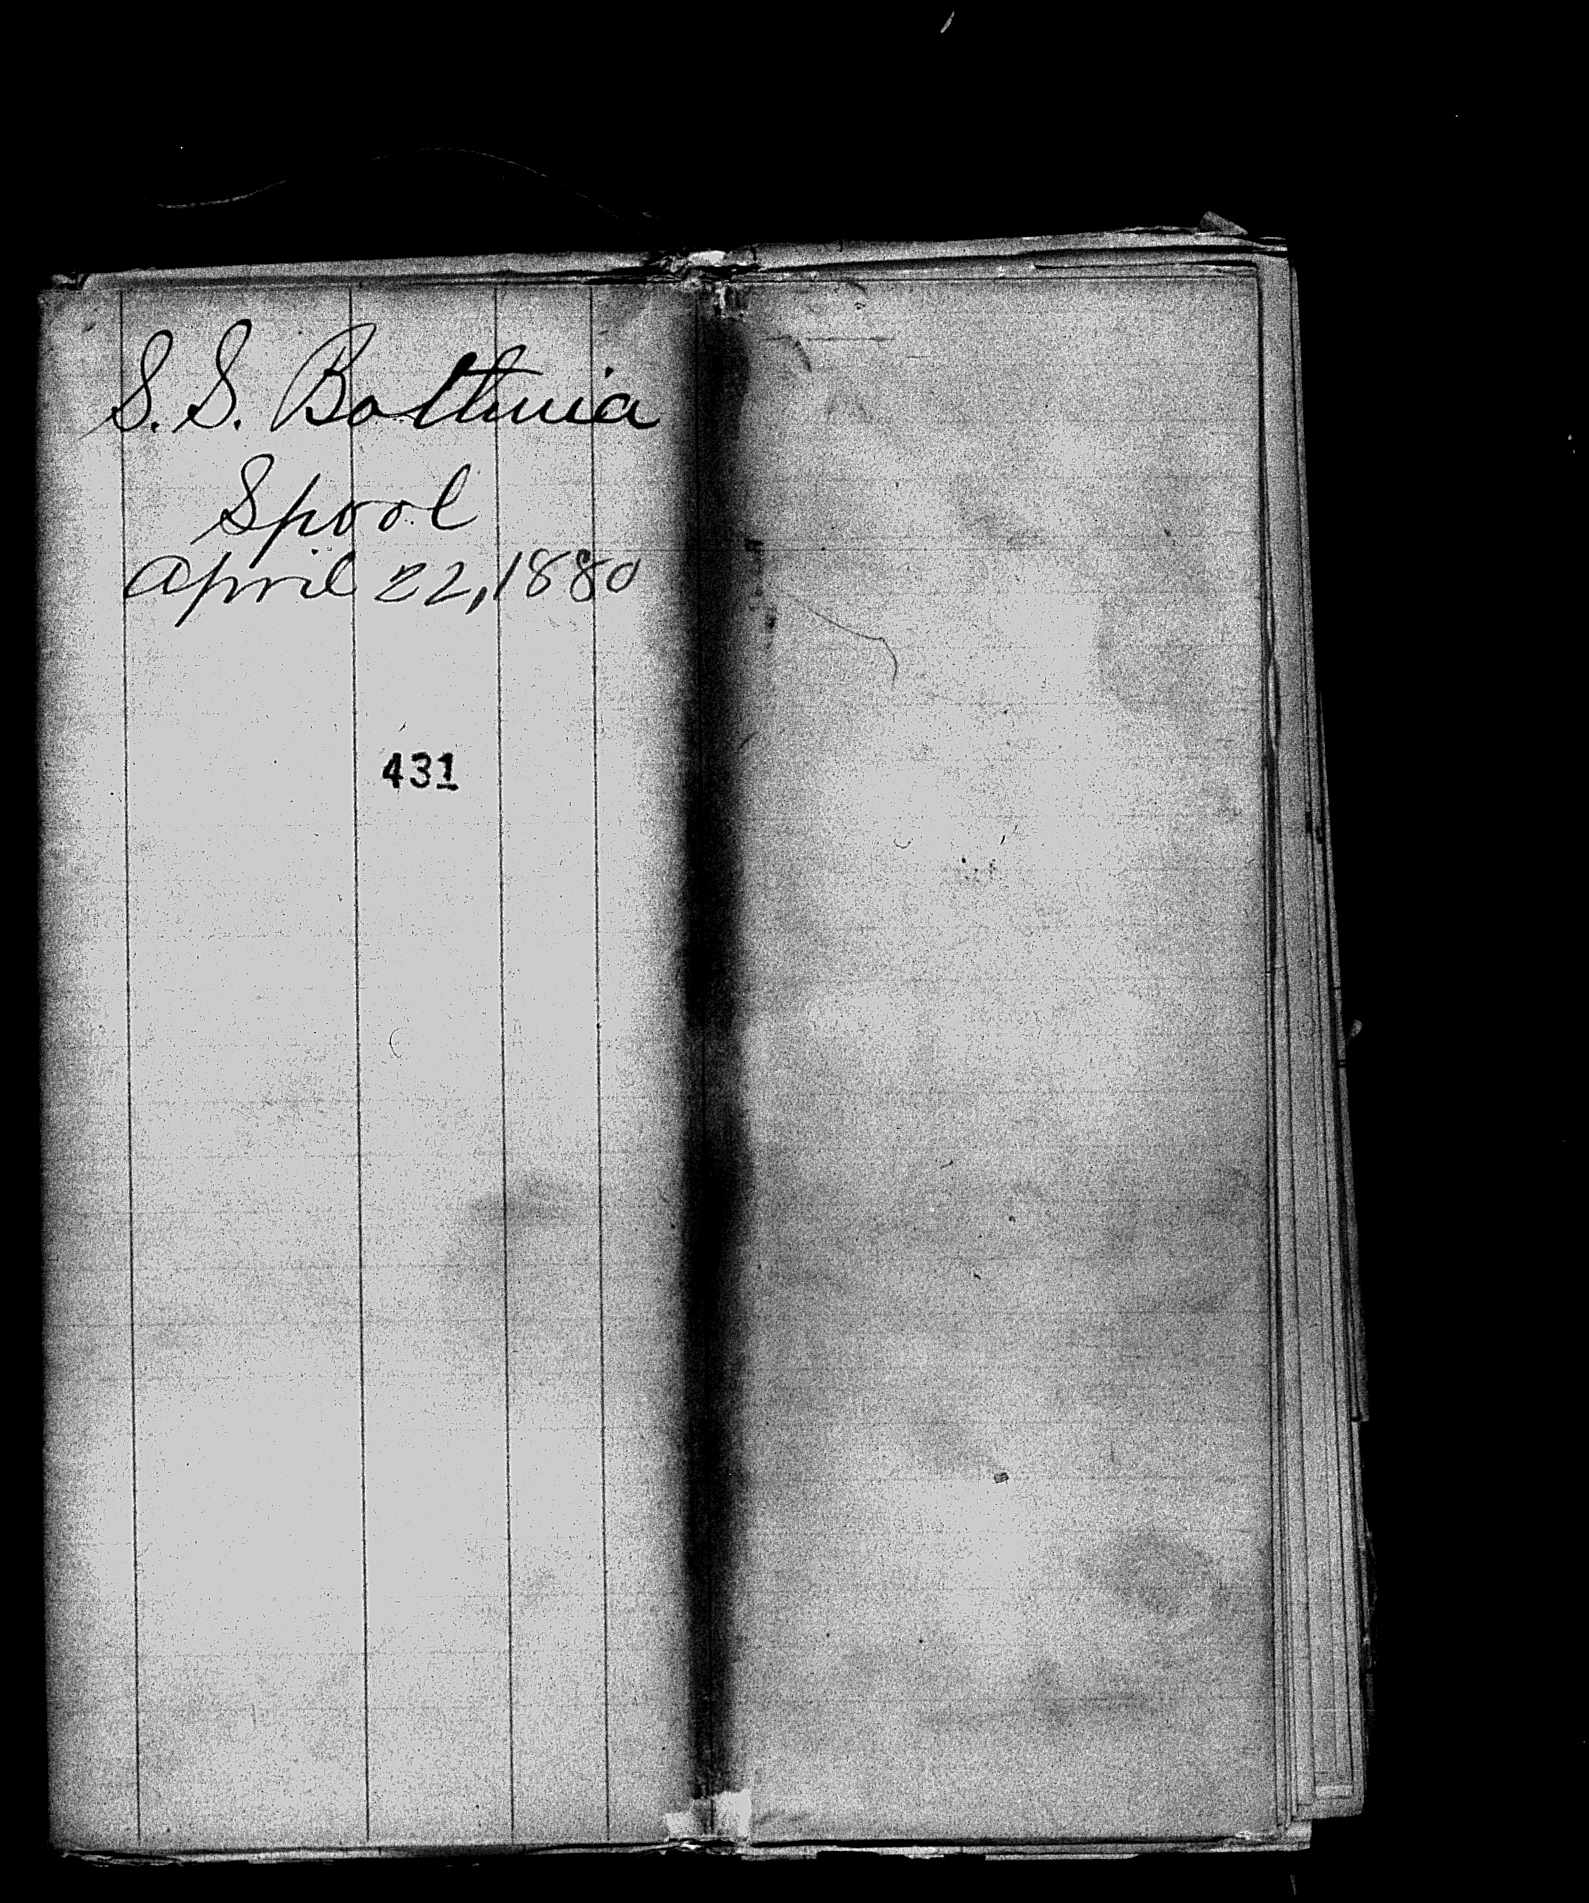 S.S. Bothnia
Spool
April 22, 1880
431